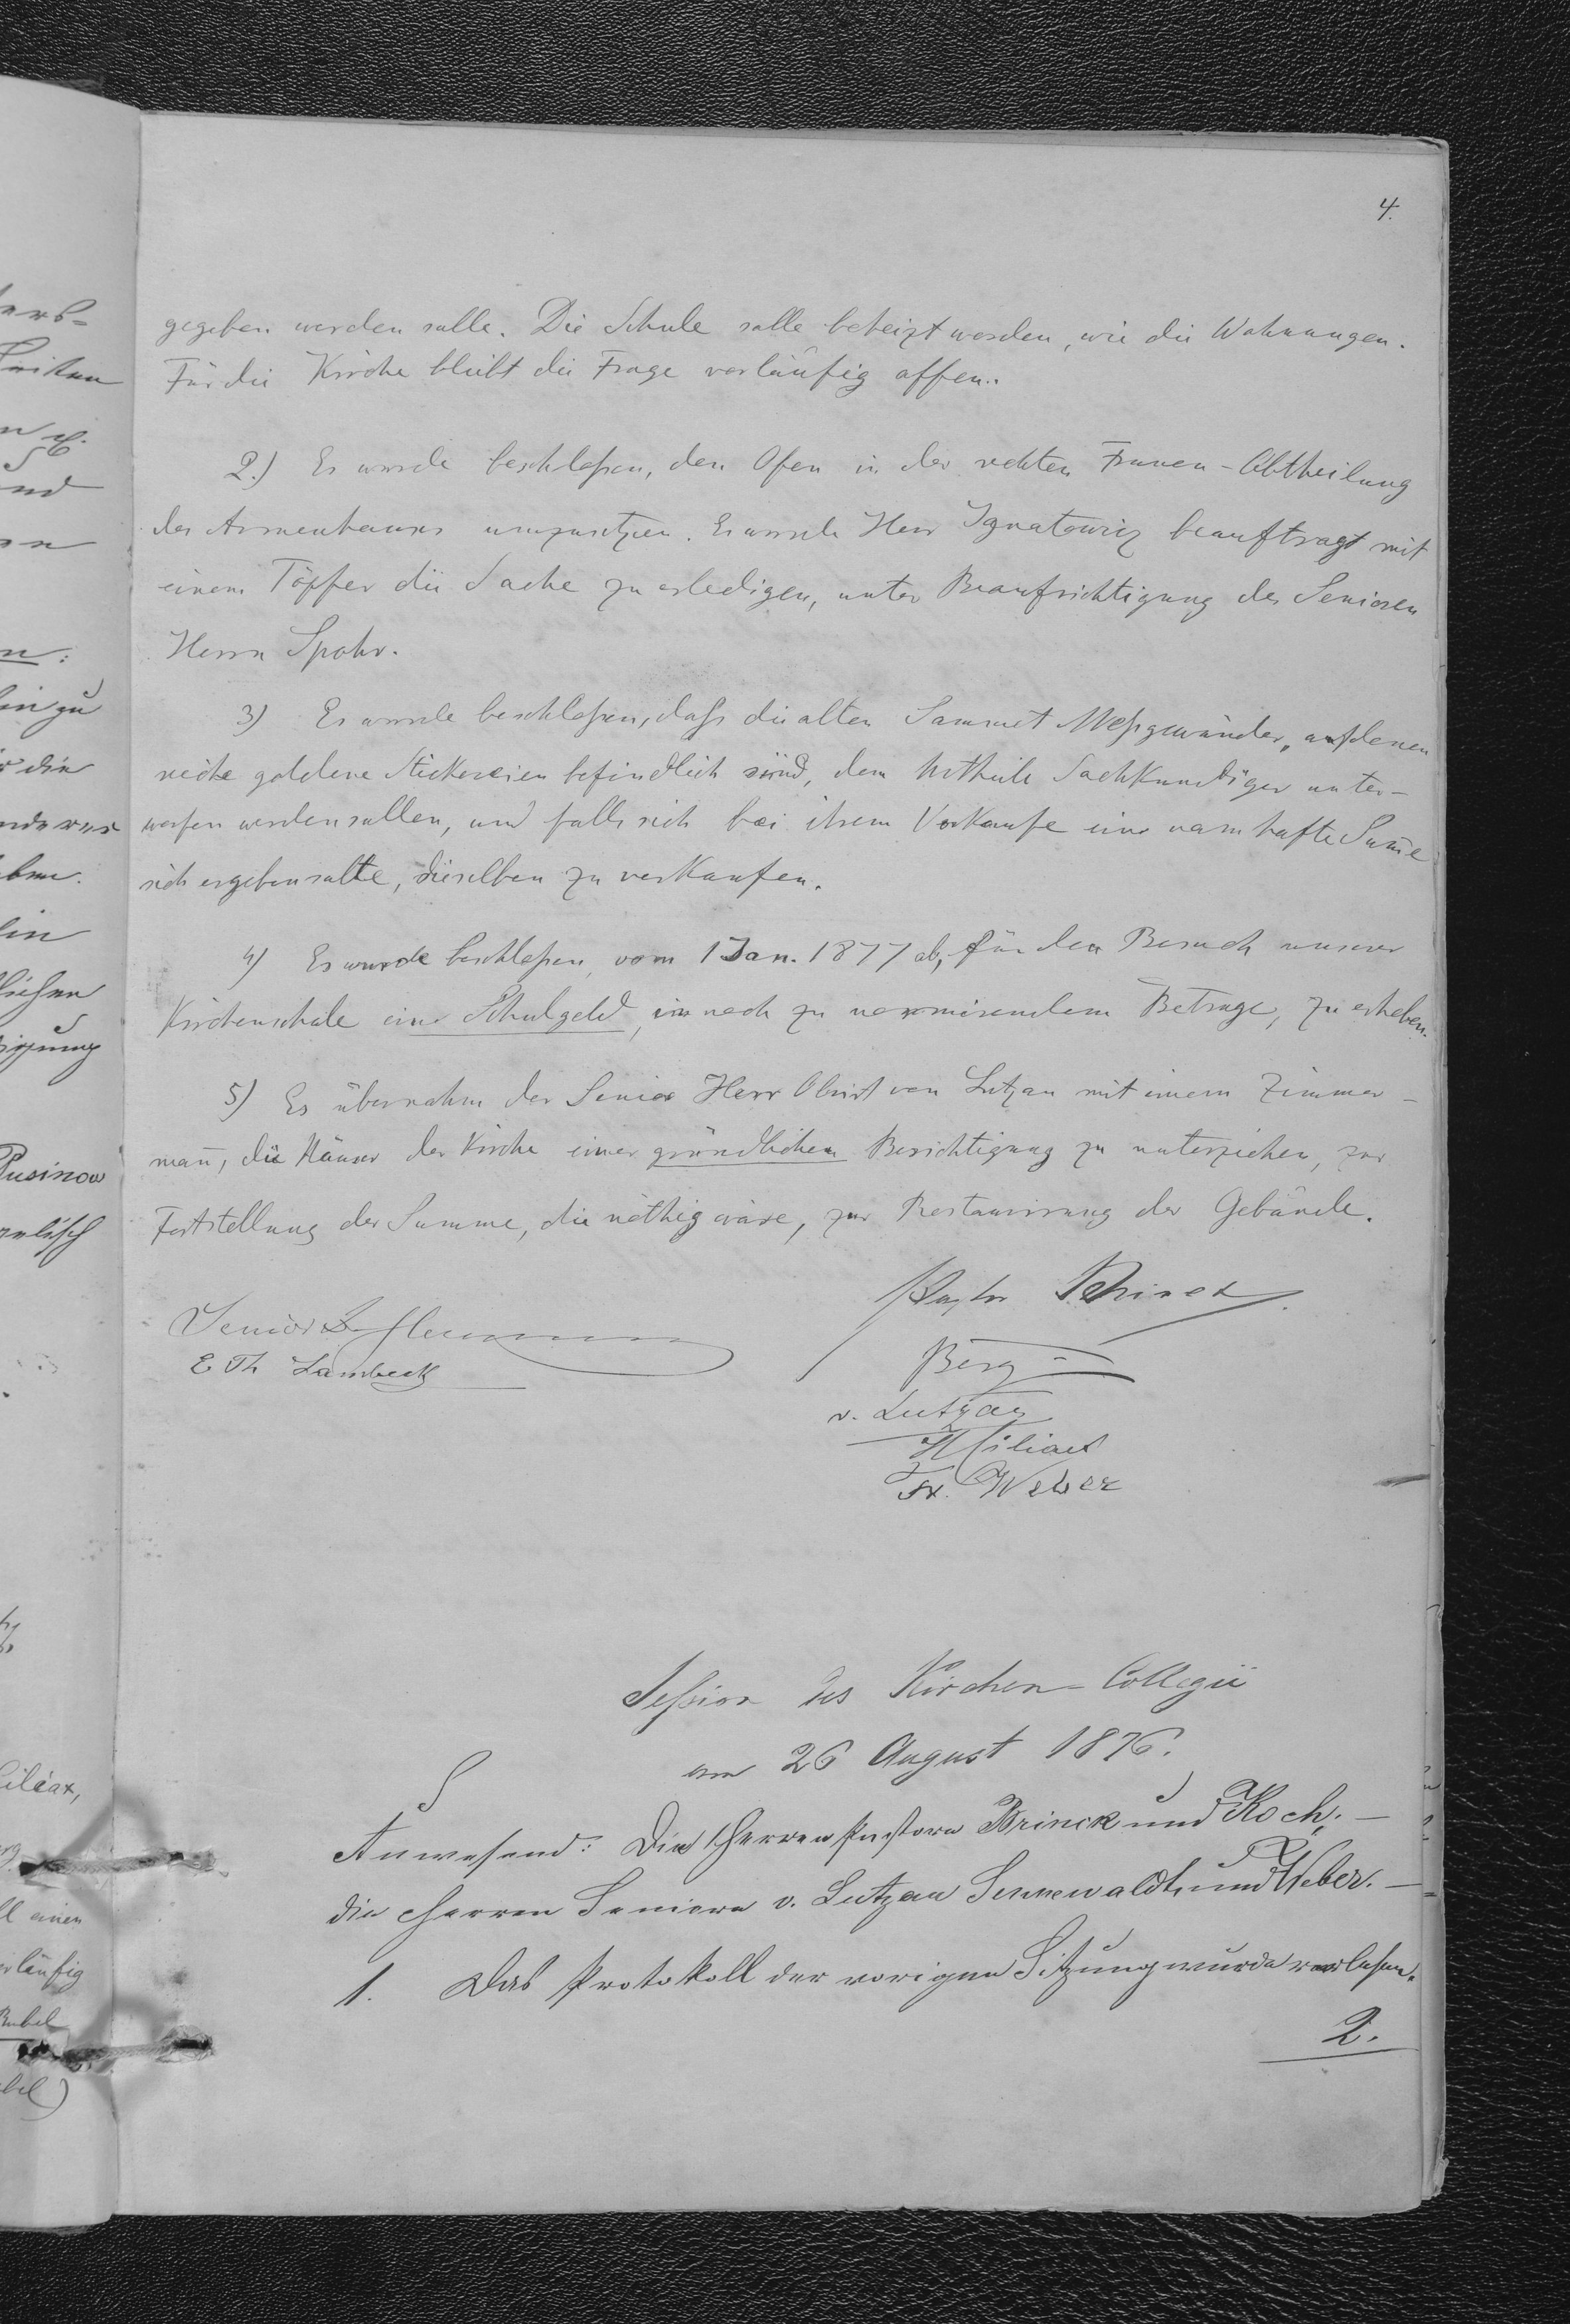 4.
gegeben werden solle. Die Schule solle beheizt werden, wie die Wohnungen.
Für die Kirche bleibt die Frage vorläufig offen.
2.) Es wurde beschloßen, den Ofen in der rechten Frauen-Abtheilung
des Armenhauses umzusetzen. Es wurde Herr Ignatowicz beauftragt mit
einem Töpfer die Sache zu erledigen, unter Beaufsichtigung des Senioren
Herrn Spohr.
3) Es wurde beschloßen, daß die alten Sammet Meßgewänder, auf denen
reiche goldene Stickereien befindlich sind, dem Urtheile Sachkundiger unter-
worfen werden sollen, und falls sich bei ihrem Verkaufe eine namhafte Sum̄e
sich ergeben sollte, dieselben zu verkaufen.
4) Es wurde beschloßen, vom 1 Jan. 1877 ab, für den Besuch unserer
Kirchenschule eine Schulgeld, im noch zu normirendem Betrage, zu erheben.
5) Es übernahm der Senior Herr Obrist von Lutzau mit einem Zimmer-
man̄, die Häuser der Kirche einer gründlichen Besichtigung zu unterziehen, zur
Feststellung der Summe, die nöthig wäre, zur Restaurirung der Gebäude.
Pastor Brinck
Senior
Berg
E Th Lambeck
v. Lutzau
Ciliax
Fr. Weber
Seßion des Kirchen-Collegii
am 26 August 1876.
Anwesend: Die Herren Pastore Brinck und Koch; —
die Herren Seniore v. Lutzau Sennewaldt und Weber. —
1. Das Protokoll der vorigen Sitzung wurde verlesen.
2.